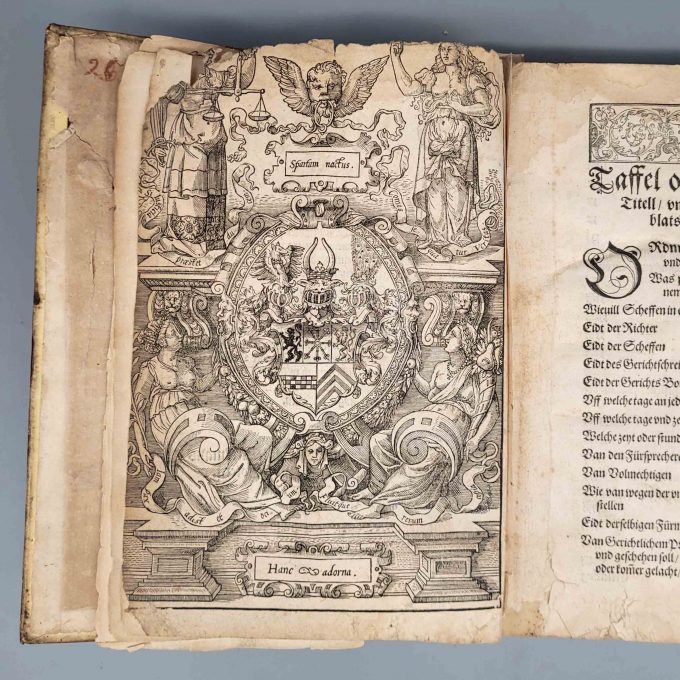 26
Spartam nactus.
Præstet
Hanc & adorna.
Taffel o
Titell / vn
blats
ORdnu
vnd
Was p
nem
Wieuill Scheffen in e
Eidt der Richter
Eidt der Scheffen
Eidt des Gerichtschrei
Eidt der Gerichts Bo
Vff welche tage an jed
Vff welche tage vnd ze
Welche zeyt oder stund
Van den Fürsprechere
Van Volmechtigen
Wie van wegen der vn
stellen
Eidt derselbigen Fürm
Van Gerichtlichem Pr
vnd geschehen soll /
oder kom̃er gelacht /